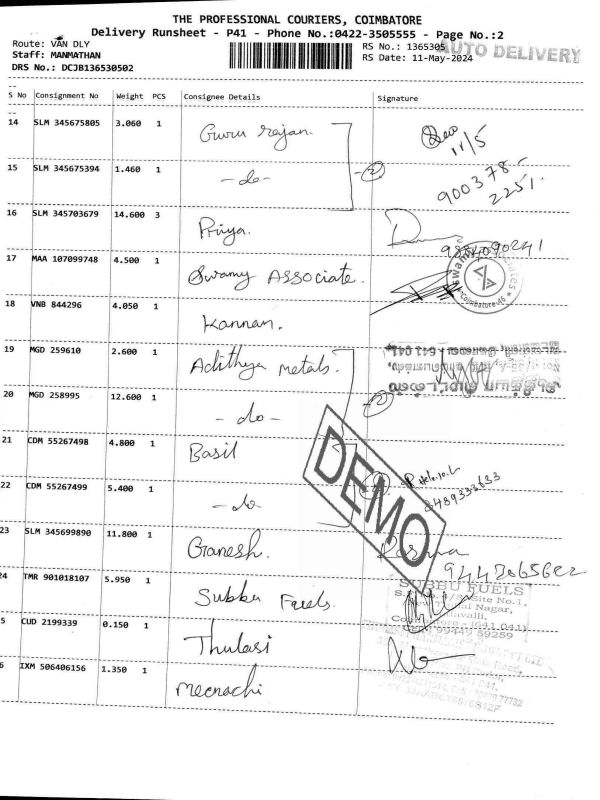 THE PROFESSIONAL COURIERS, COIMBATORE
Delivery Runsheet - P41 - Phone No.:0422-3505555 - Page No.:2
Route: VAN DLY
RS No.: 1365305
AUTO DELIVERY
Staff: MANMATHAN
RS Date: 11-May-2024
DRS No.: DCJB136530502
S No Consignment No Weight PCS Consignee Details Signature
14 SLM 345675805 3.060 1 Guru rajan. 11/5
15 SLM 345675394 1.460 1 -do- 2 900378-
2251.
16 SLM 345703679 14.600 3 Priya.
9884090241
17 MAA 107099748 4.500 1 Swamy ASSOCIATE. Coimbatore-46
18 VNB 844296 4.050 1 Kannan.
19 MGD 259610 2.600 1 Adithya metals.
20 MGD 258995 12.600 1 -do- 2
21 CDM 55267498 4.800 1 Basil
22 CDM 55267499 5.400 1 -do- 8489333633
DEMO
23 SLM 345699890 11.800 1 Ganesh.
24 TMR 901018107 5.950 1 Subbu Fuels.
SUBBU FUELS
5 CUD 2199339 0.150 1 Thulasi
6 IXM 506406156 1.350 1 Meenachi